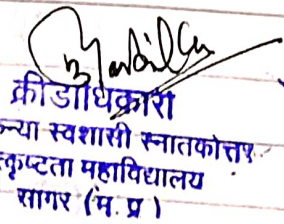 क्रीडाधिकारी
न्या स्वशासी स्नातकोत्तर
स्कृष्टता महाविद्यालय
सागर (म. प्र )